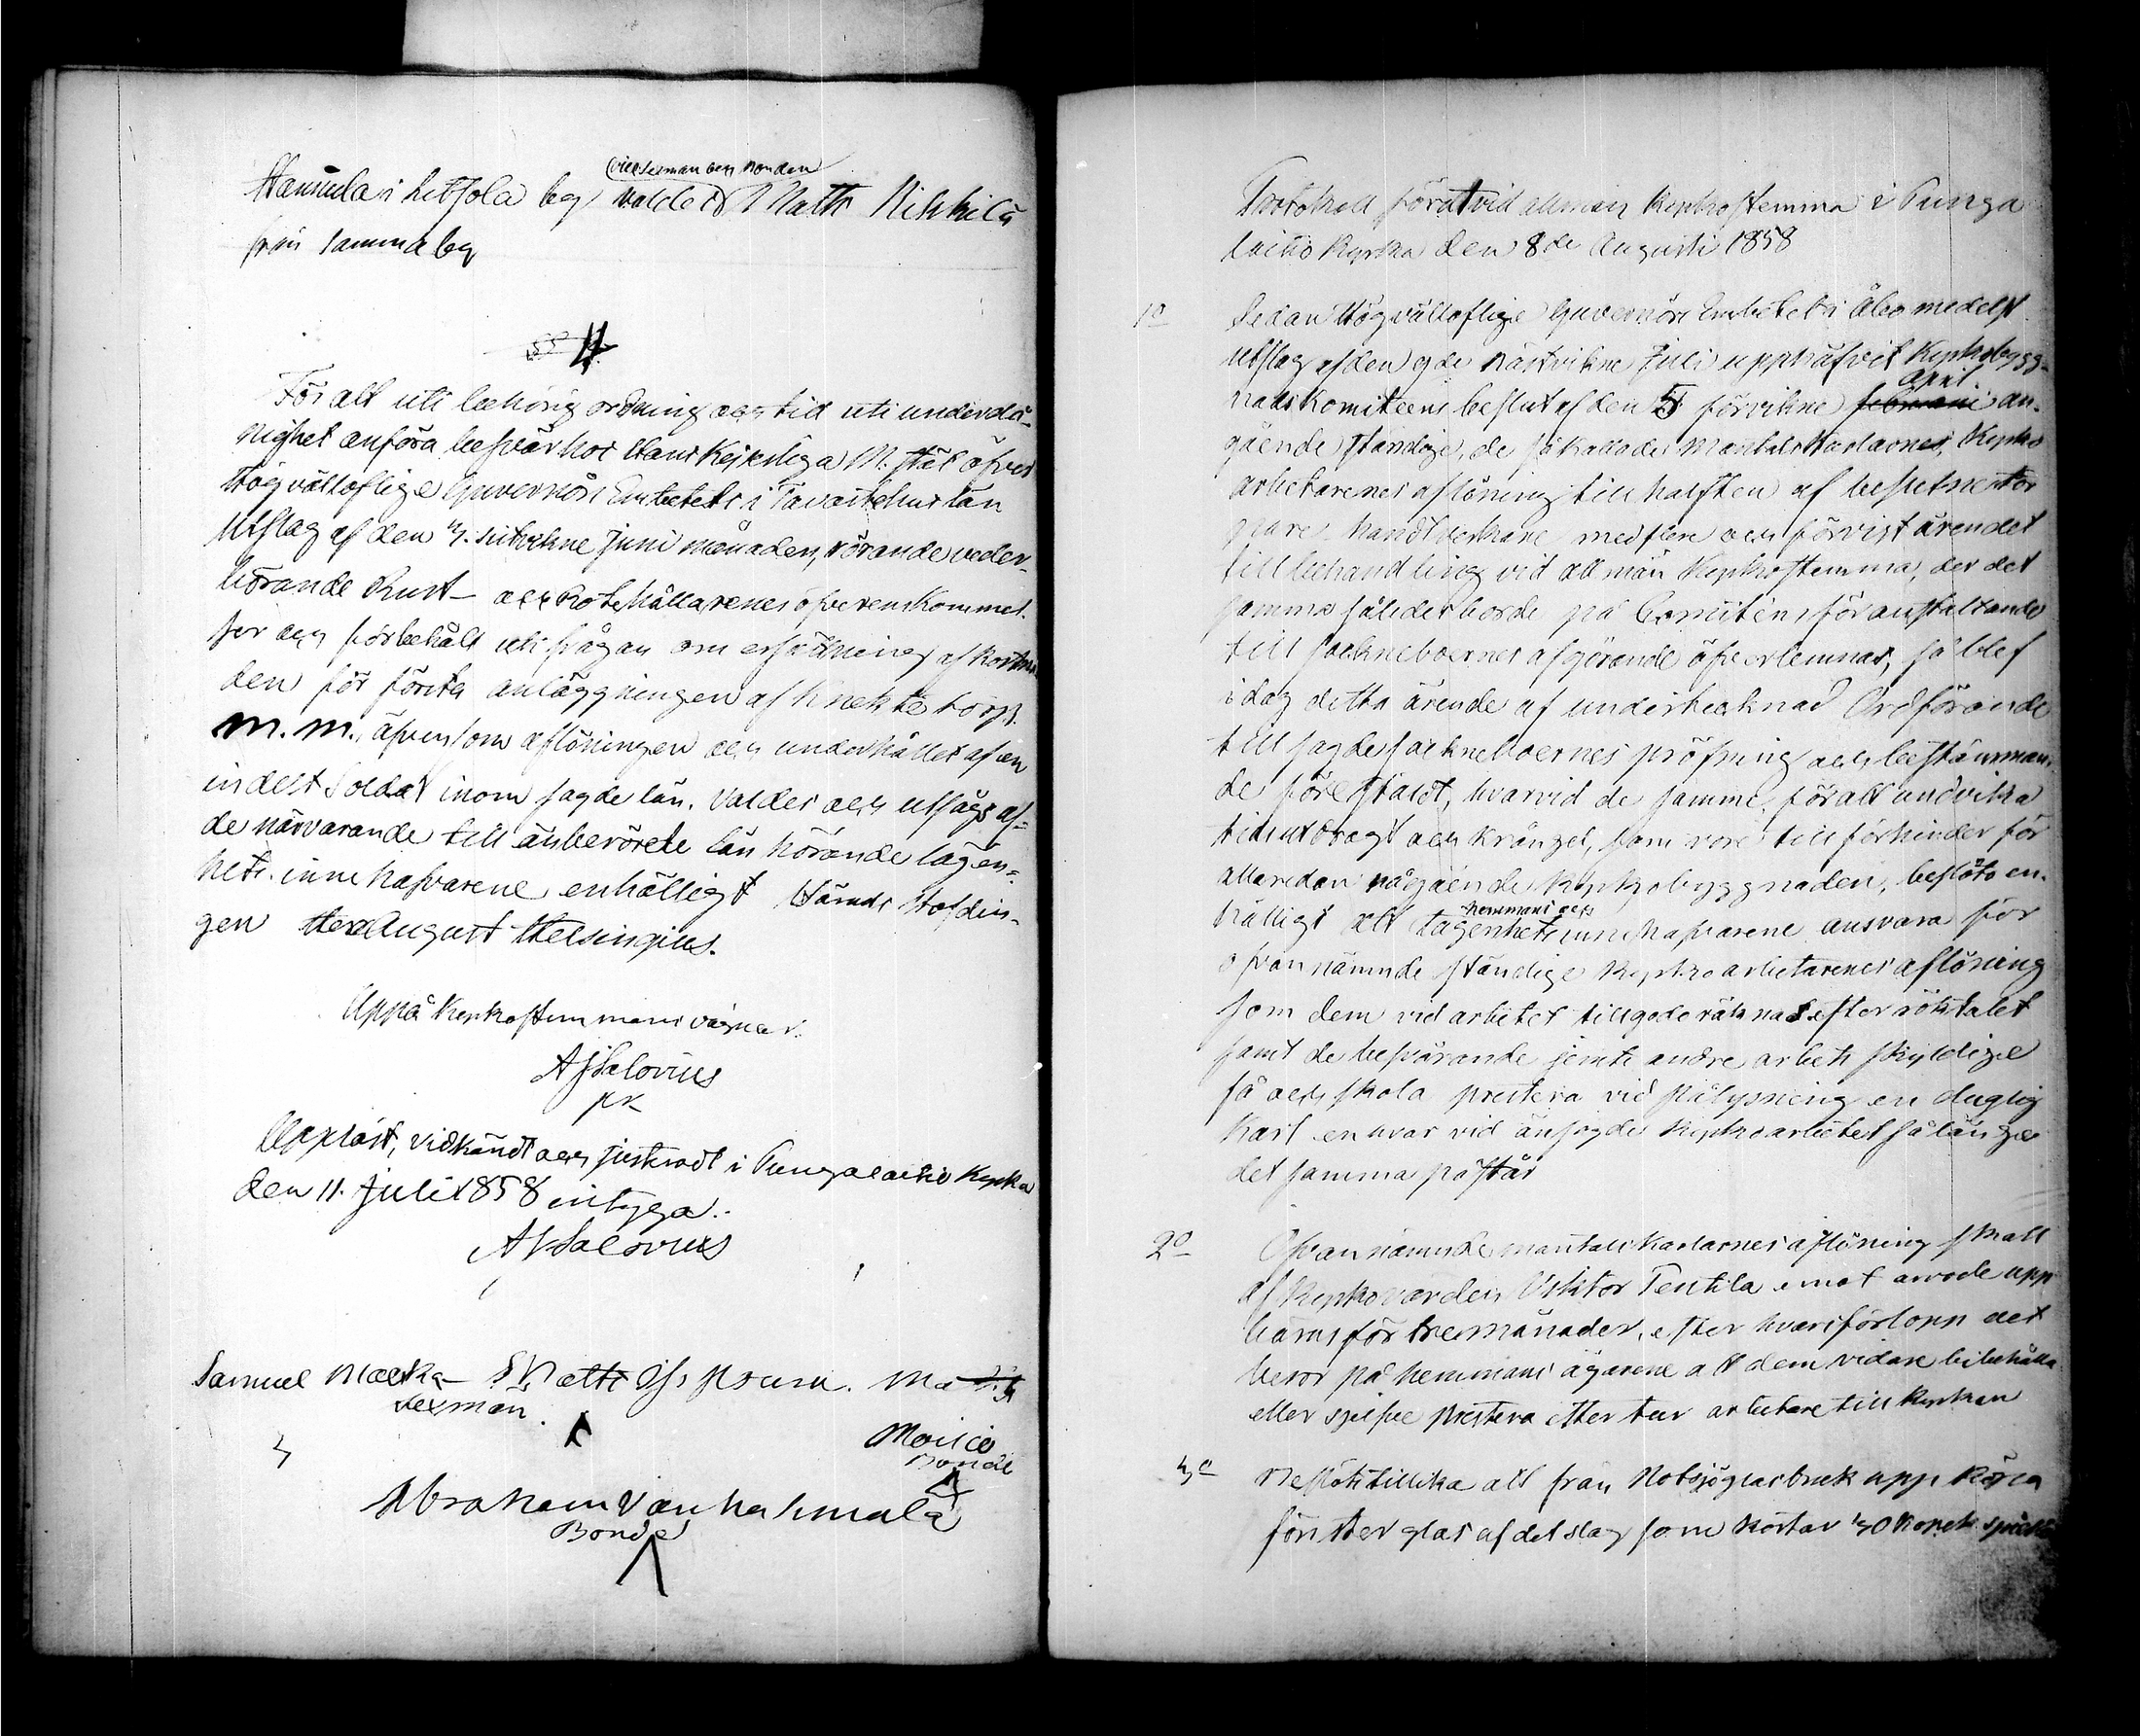 vice Sexman och Bonden
Hannula i Letsola by valdes Matts Kikkilä
från samma by
§ 4.
För att uti behörig ordning och tid uti underdå-
nighet anföra besvär hos Hans Kejserliga M. stät öfver
Högvälloflige Guvernörs Embetets i Tavastehus län
Utslag af den sistvikne Juni månaden, rörande veder-
börande Rust- och Rotehållarenes öfverenskommel-
ser och förbehåll uti frågan om ersättning af kostna-
den för första anläggningen af Knekte torp
m.m. äfvensom aflöningen och underhållet af en
indelt Soldat inom sagde län. Valdes och utsågs af
de närvarande till änberörde län hörande lägen-
hets innehafvarene enhälligt Härads Höfdin-
gen Herr August Helsingius.
Uppå Kyrkostemmans vägnar.
AJSalovius
pk
Uppläst, vidkändt och justeradt i Pungalaitio Kyrka
den 11. Juli 1858 intyga.
AJSalovius
Samuel Macka Matts
Sexman.
Moisio
Bonde
Abraham Vanhahmala
Bonde
Protokoll fördt vid allmän Kyrkostemma i Punga
laitio Kyrka den 8de Augusti 1858
1o Sedan Högvälloflige Guvernörs Embetet i Åbo medelst
utslag af den 9de nästvikne Juli upphäfvit Kyrkobygg-
april
nads Komiteens beslut af den 5 förvikne februari an-
gående ständige, de så kallade Mantals karlarnes, Kyrko
arbetarenes aflöning till hälften af besutne tor
pare handtverkare med flere och förvist ärendet
till behandling vid allmän Kyrkostemma, der det
samma således borde på Comitens föranstaltande
till sockneboernes afgörande öfverlemnas, så blef
i dag detta ärende af undertecknad Ordförande
till sagde sockneboernes pröfning och bestämman-
de förestäldt, hvarvid de samme, för att undvika
tidsutdrägt och krångel, som vore till förhinder för
allaredan pågående Kyrkobyggnaden, beslöto en-
hemmans och
hälligt att lägenhets innehafvarene ansvara för
ofvannämnde ständige Kyrkoarbetarenes aflöning
som dem vid arbetet tillgodo räknas efter röktalet
samt de besvärande jemte andre arbets skyldige
få och skola prestera vid pålysning en duglig
Karl en hvar vid änsagde Kyrkoarbetet så länge
det samma påstår
2o Ofvannämnde mantalskarlarnes aflöning skall
af Kyrkovärden Viktor Tentila emot arvode upp
bäras för tre månader, efter hvars förlopp det
beror på hemmans ägarene att dem vidare bibehålla
eller sjelfve prestera efter tur arbetare till Kyrkan
3o Beslöts tillika att från Notsjöglasbruk upp köpa
fönster glas af det slag som kostar 30 kopek